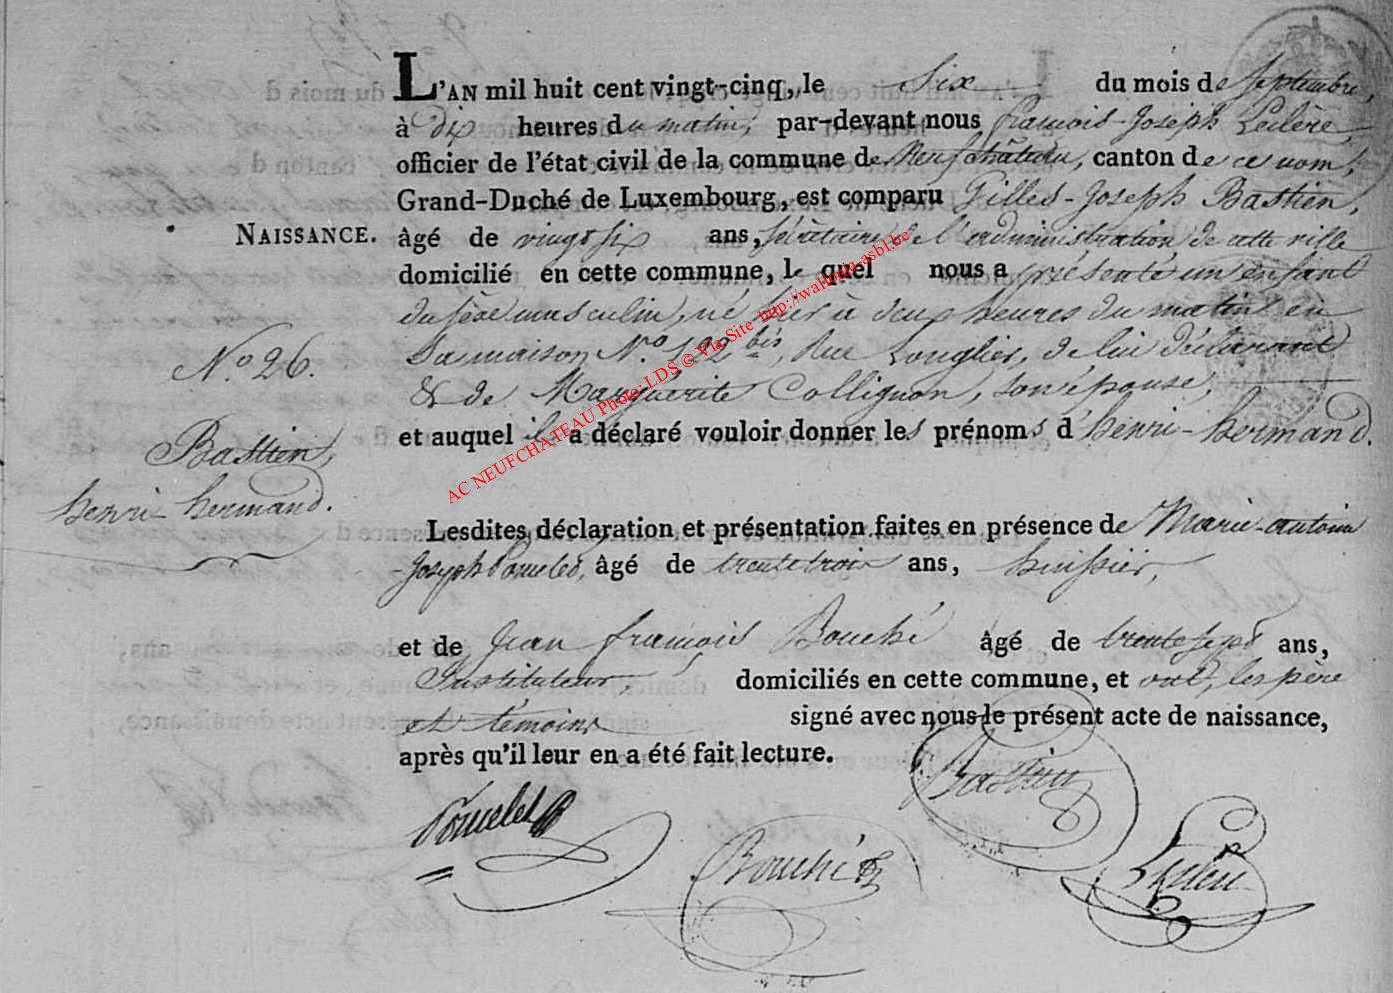 L'AN mil huit cent vingt-cinq, le six du mois de Septembre,
à dix heures du matin, par-devant nous françois-Joseph Leclère,
officier de l'état civil de la commune de Neufchâteau, canton de ce nom,
Grand-Duché de Luxembourg, est comparu Gilles-Joseph Bastien,
NAISSANCE.
âgé de vingt six ans, Sécrétaire de l'administration de cette ville
domicilié en cette commune, le quel nous a présenté un enfant
du sexe masculin, né hier à deux heures du matin en
Sa maison N.o 122 bis, Rue Longlier, de lui déclarant
& de Marguérite Collignon, son épouse,
et auquel il a déclaré vouloir donner les prénoms d'henri-hermand.
N.o 26.
Bastien,
henri-hermand.
Lesdites déclaration et présentation faites en présence de Marie-antoine
-Joseph Pomelet, âgé de trente trois ans, huissier,
et de Jean françois Bouché âgé de trente sept ans,
Instituteur, domiciliés en cette commune, et ont, les père
et témoins signé avec nous le présent acte de naissance,
après qu'il leur en a été fait lecture.
Bastien
Pomelet
Bouché
Leclère
AC NEUFCHATEAU Photo: LDS © Via Site http://wallonia-asbl.be